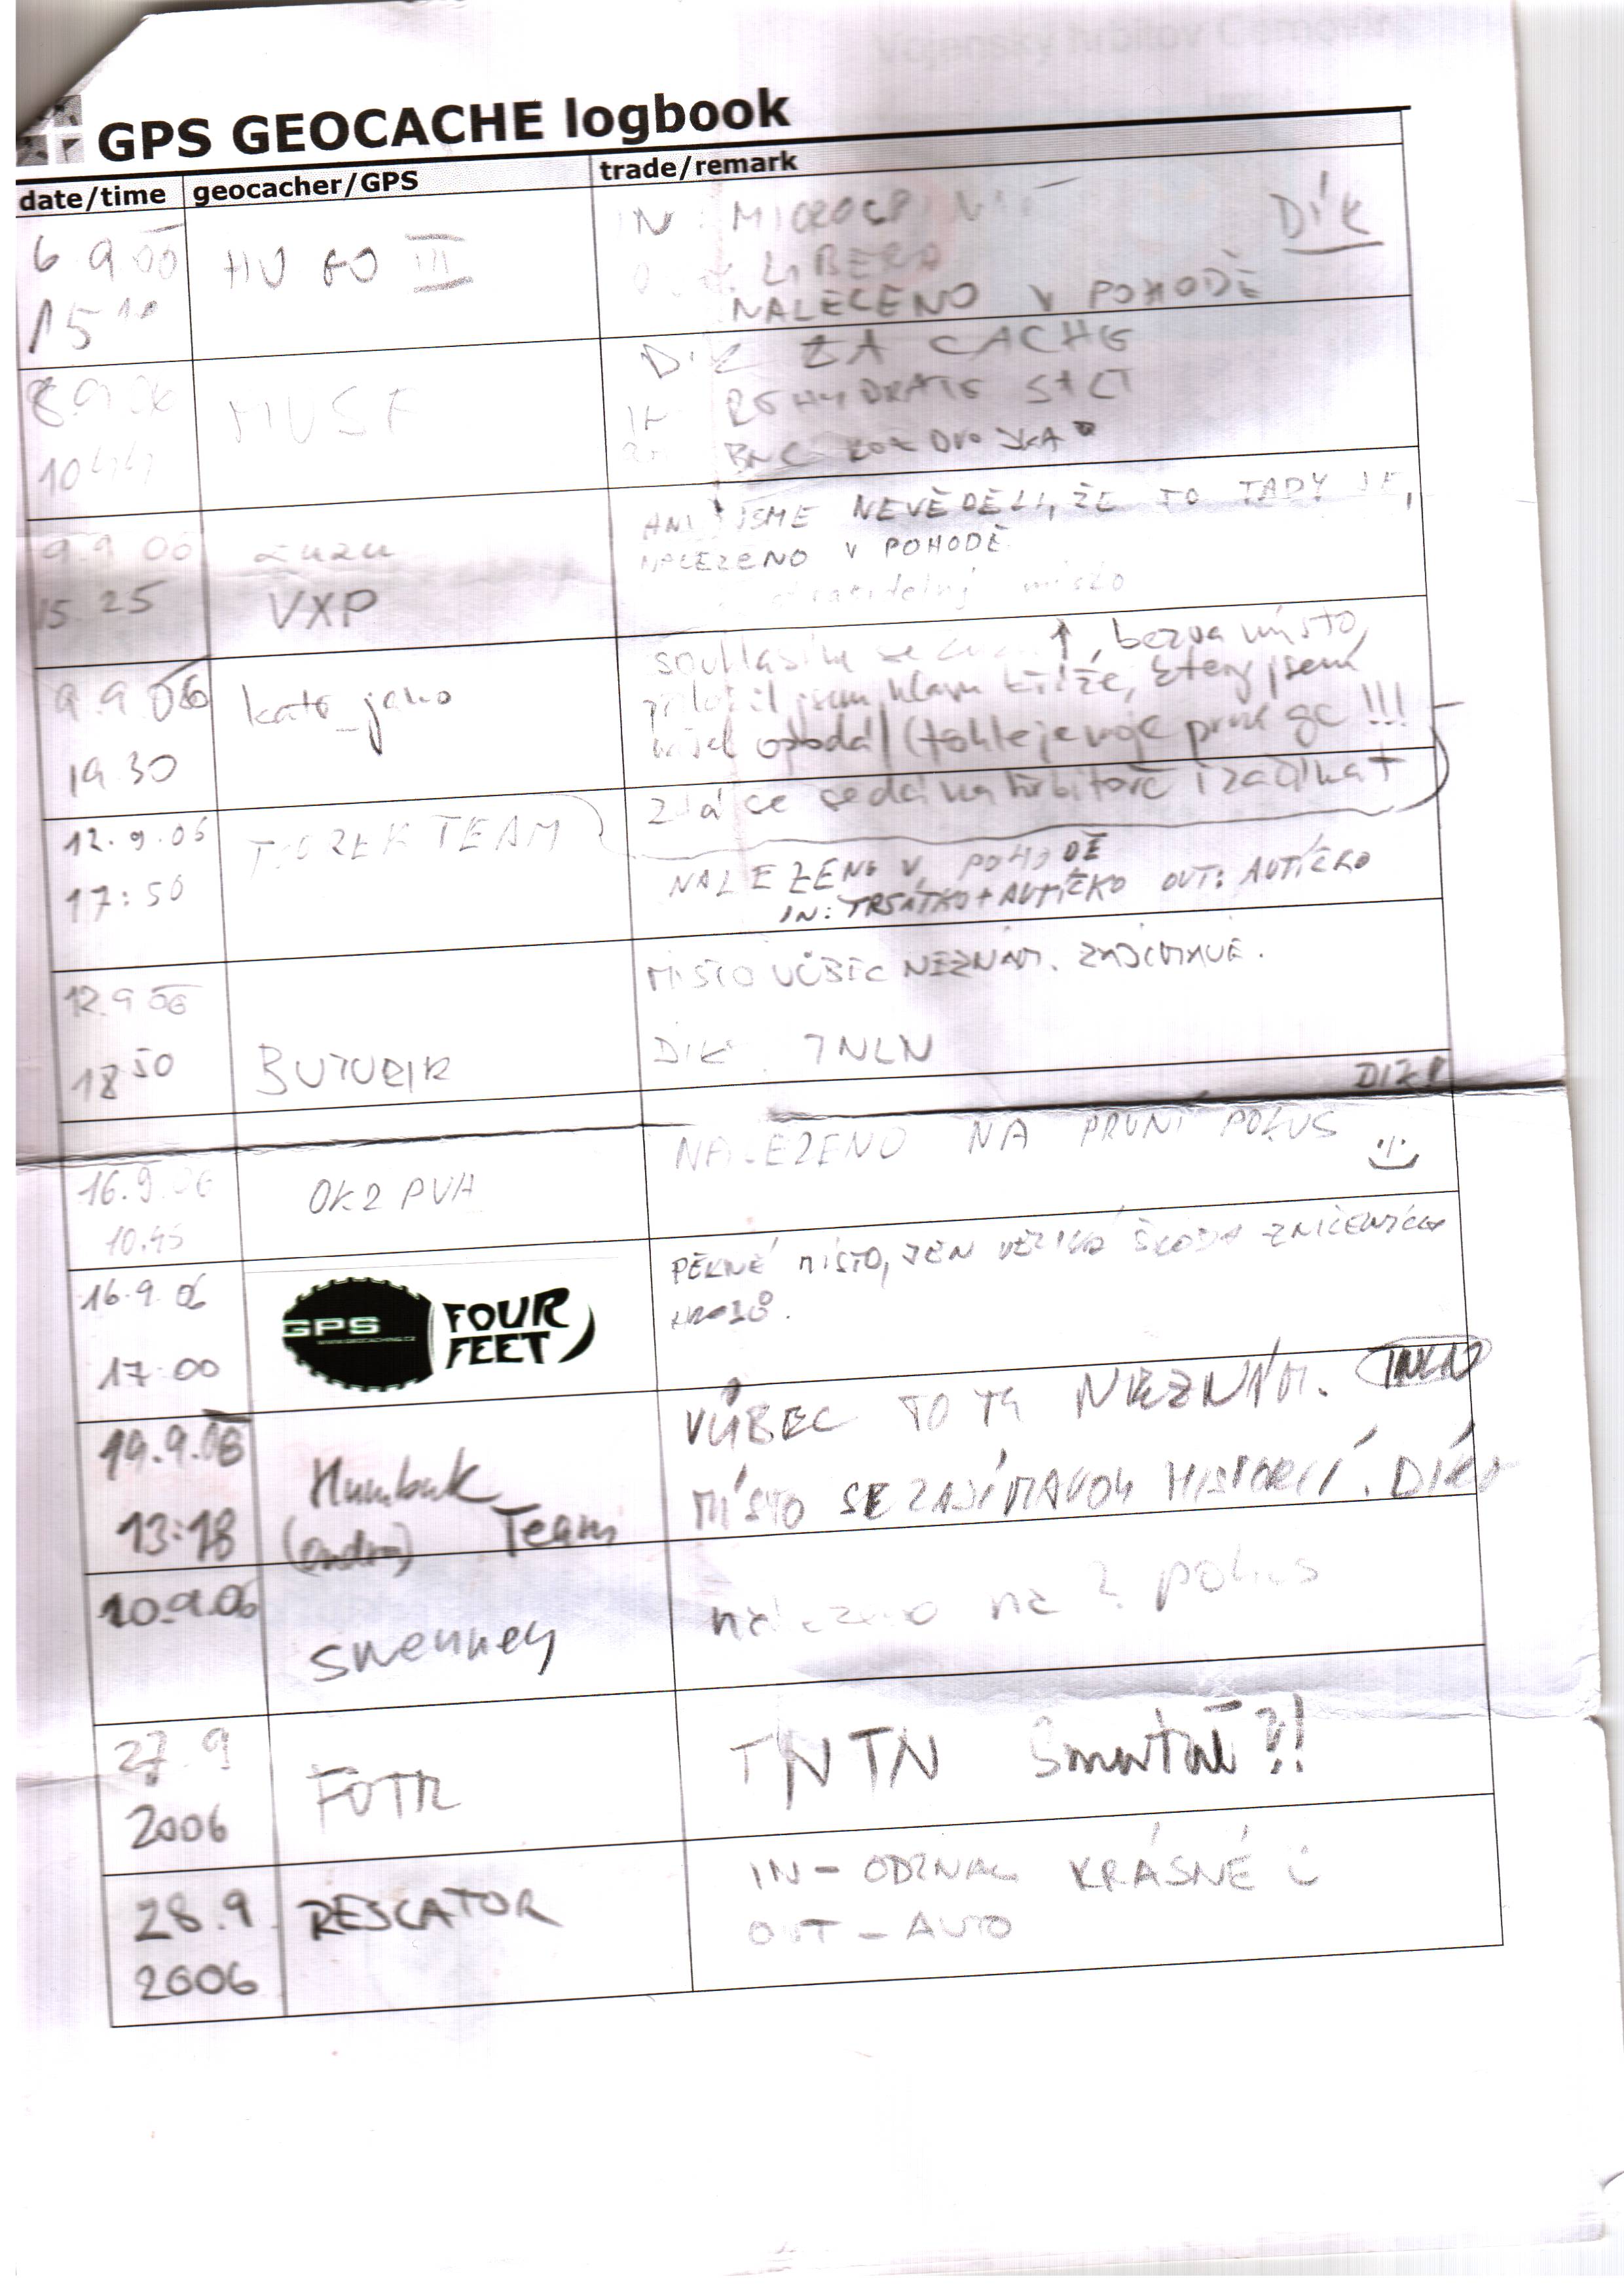 Vojenský hřbitov Černovír
GPS GEOCACHE logbook
date/time geocacher/GPS trade/remark
6.9.06 HUGO III IN: DÍK
15 10 LIBERA
NALEZENO V POHODĚ
8.9.06 DÍK ZA CACHE
10 44 IN
BNC
9.9.06 zuzu ANI JSME NEVĚDĚLI, ŽE TO TADY JE,
15.25 VXP NALEZENO V POHODĚ
místo
9.9.06 kato_jako souhlasím se ↑, bezva místo,
19.30 přiložil jsem hlavu kříže, který jsem
našel opodál (tohle je moje prvni gc!!!
Zdá se se dá na hřbitově i začínat)
12.9.06 TEAM NALEZENO V POHODĚ
17:50 IN: TRSÁTKO + AUTÍČKO OUT: AUTÍČKO
12.9.06 MÍSTO VŮBEC NEZNÁM. ZAJÍMAVÉ.
18 50 BUTUZIK DÍK TNLN
DÍK!
16.9.06 OK2PVH NALEZENO NA PRVNÍ POKUS
10.45
16.9.06 GPS FOUR FEET PĚKNÉ MÍSTO, JEN VELIKÁ ŠKODA ZNIČENÝCH
17:00 HROBŮ.
19.9.06 Humbuk VŮBEC TO TU NEZNÁM. TNLN
13:18 (ondra) Team MÍSTO SE ZAJÍMAVOU HISTORIÍ. DÍKY
20.9.06 Sweeney nalezeno na 2. pokus
27.9 FOTR TNTN
2006
28.9 RESCATOR IN - ODZNAK KRÁSNÉ
2006 OUT - AUTO